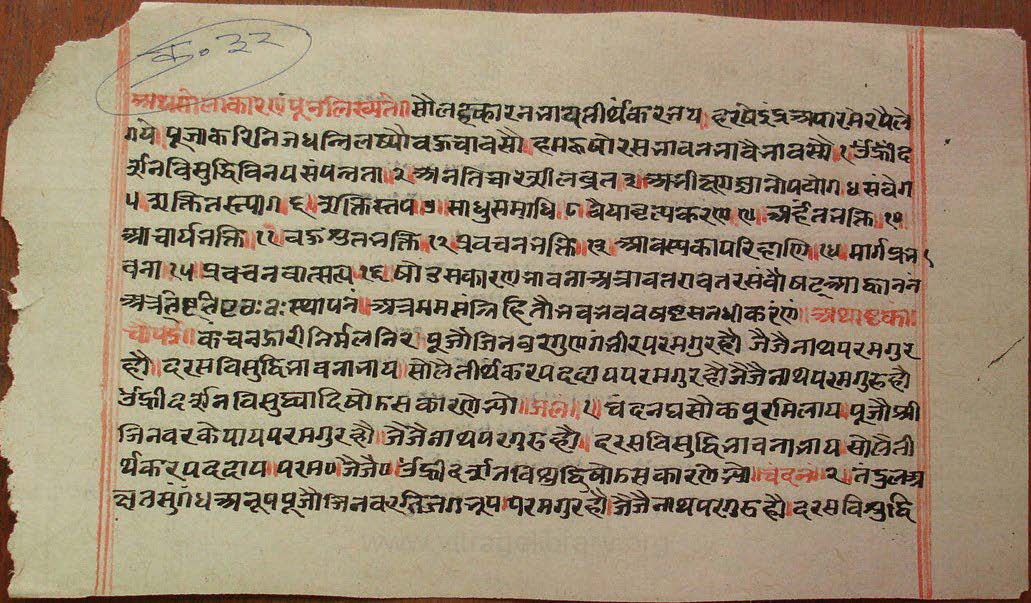 क्र॰ ३२
अथसोलाकारणपूजालिख्यते॥ सौलहकारनभायतीर्थंकरजय हरषेइंद्रअपारमेरपैले
गये पूजाकरिनिजधन्लिलष्यौबऊचावसौ हमऊषोरसभावनभावैभावसौ १ॐह्रींद
र्शनविसुद्धिविनयसंपन्नता २ अनतिचारशीलव्रत ३ अभीक्ष्णज्ञानोपयोग ४ संवेग
५ शक्तितस्त्याग ६ शक्तिस्तप ७ साधुसमाधि ८ वैयावृत्यकरण ९ अर्हंतभक्ति १०
आचार्यभक्ति ११ बऊश्रुतभक्ति १२ प्रवचनभक्ति १३ आवस्यकापरिहाणि १४ मार्गप्रभा
वना १५ प्रवचनवात्सल्य १६ षोडसकारणभावनाअत्रावतरावतरसंवौषट्आह्वाननं
अत्रतिष्टतिष्टठःठःस्थापनं॥ अत्रममसंन्निहितौभवभवववषट्सनधीकरणं॥ अथाष्टका
चौपई॥ कंचनझारीनिर्मलनिर पूजौजिनवरगुणगंभीरपरमगुरहौ जैजैनाथपरमगुर
हौ॥ दरसविसुद्धिभावनाभाय सोलैतीर्थंकरपददायपरमगुरहौ जैजैनाथपरमगुरुहौ
ॐह्रींदर्शनविसुद्ध्यादिषोडसकारणेभ्यो॥ जलं॥ १ चंदनघसौकपूरमिलाय पूजौश्री
जिनवरकेपायपरमगुरहौ॥ जैजैनाथपरगुरुहौ॥ दरसविसुद्धिभावनाभाय सोलैती
र्थंकरपददाय परम॰ जैजै॰॥ ॐह्रींदर्शनविशुद्धिषोडसकारणेभ्यो॥ चंदनं॥ २॥ तंदुलअ
क्षतसुगंधअनूप पूजौजिनवरतिजगभूप परमगुरहौ॥ जैजैनाथपरगुरुहौ॥ दरसविशुद्धि
www.vitragelibrary.org